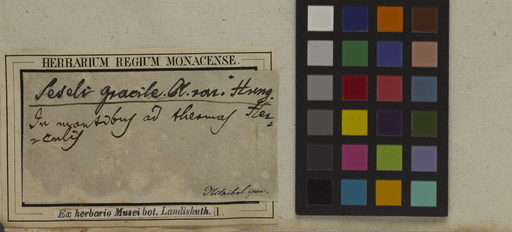 HERBARIUM REGIUM MONACENSE.
Seseli gracile. Pl. rar. Hung.
In montibus ad thermas Her=
=culis
Kitaibel
Ex herbario Musei bot. Landishuth.